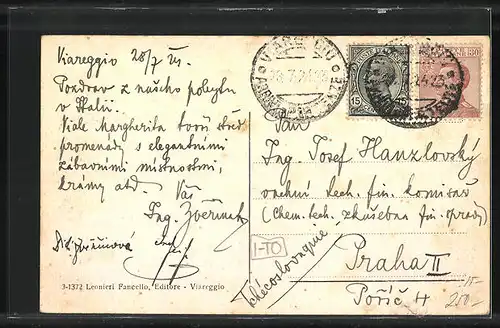 Viareggio 28/7 25.
Pozdrav z našeho pobytu
v Italii.
Viale Margherita tvoří střed
promenády s elegantními
zábavními místnostmi,
krámy atd. Váš
Ing.
3-1372 Leonieri Pancello, Editore - Viareggio
VIAREGGIO
15
30
Pan
Ing. Josef Hanzlovský
vrchní tech. fin. komisař
(Chem. tech. zkušebna fin. správy)
I-TO
Tchécoslovaquie
Praha II
Poříč 4
250.-